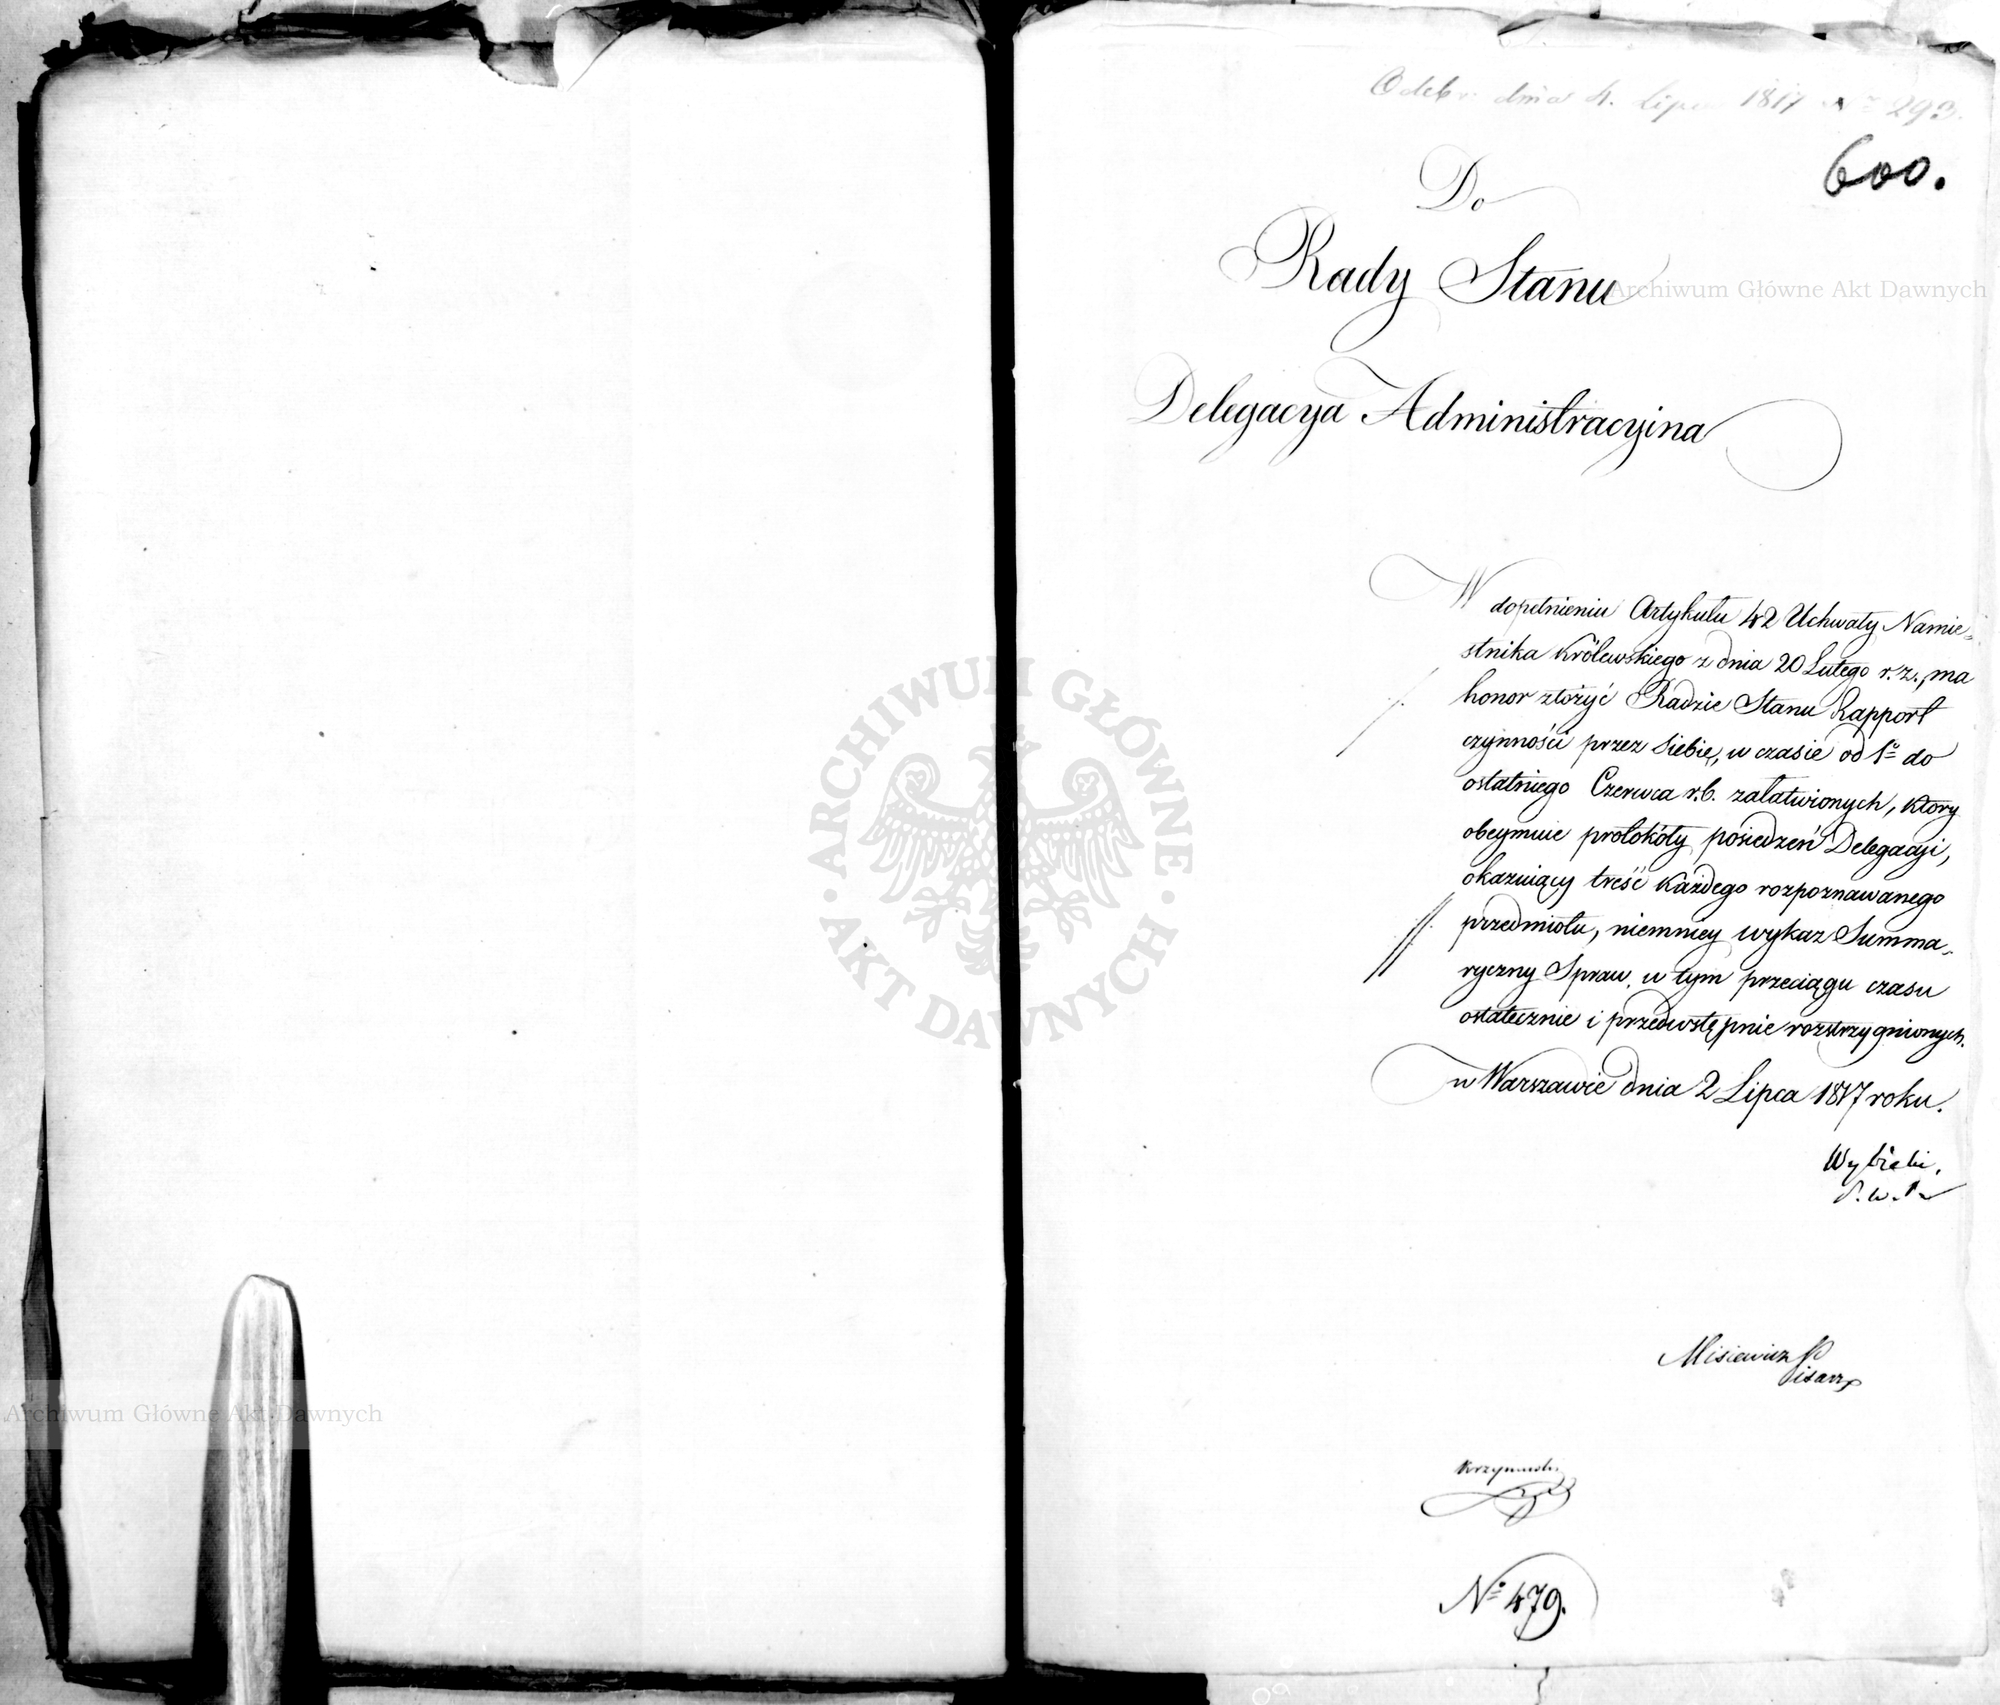 Odebr. dnia 4. Lipca 1817 Nr 293.
600.
Do
Rady Stanu
Delegacya Administracyina
W dopełnieniu Artykułu 42 Uchwały Namie=
stnika Królewskiego z dnia 20 Lutego r. z., ma
honor złożyć Radzie Stanu Rapport
czynności przez Siebie, w czasie od 1º do
ostatniego Czerwca r. b. załatwionych, ktory
obeymuie protokóły posiedzeń Delegacyi,
okazuiący treść każdego rozpoznawanego
przedmiotu, niemniey wykaz Summa=
ryczny Spraw, w tym przeciągu czasu
ostatecznie i przedwstępnie rozstrzygnionych.
w Warszawie dnia 2 Lipca 1817 roku.
Wybicki.
Misiewicz Pisarz
No 479.
Archiwum Główne Akt Dawnych
Archiwum Główne Akt Dawnych
ARCHIWUM GŁÓWNE · AKT DAWNYCH ·